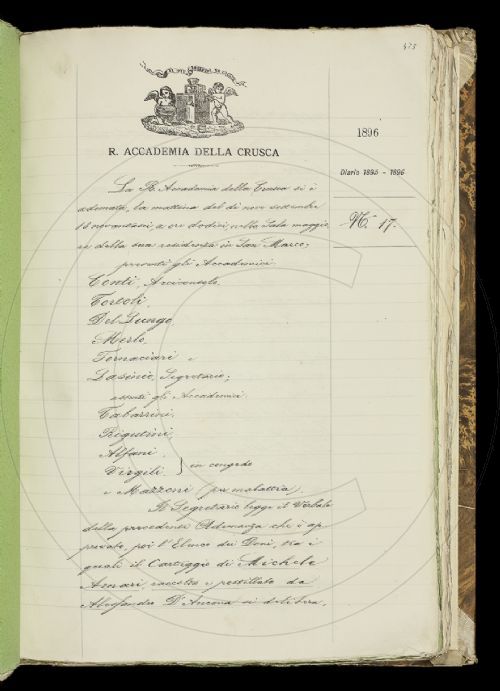 473
R. ACCADEMIA DELLA CRUSCA
1896
Diario 1895 - 1896
N.° 17.
La R. Accademia della Crusca si è
adunata, la mattina del dì nove settembre
1896, a ore dodici, nella Sala maggio-
re della sua residenza in San Marco;
presenti gli Accademici
Conti, Arciconsolo,
Tortoli,
Del Lungo,
Merlo,
Fornaciari e
Lasinio, Segretario;
assenti gli Accademici
Tabarrini,
Rigutini,
Alfani
Virgili } in congedo
e Mazzoni (per malattia).
Il Segretario legge il Verbale
della precedente Adunanza che è ap-
provato, poi l'Elenco dei Doni, tra i
quali il Carteggio di Michele
Amari, raccolto e postillato da
Alessandro D'Ancona si delibera,